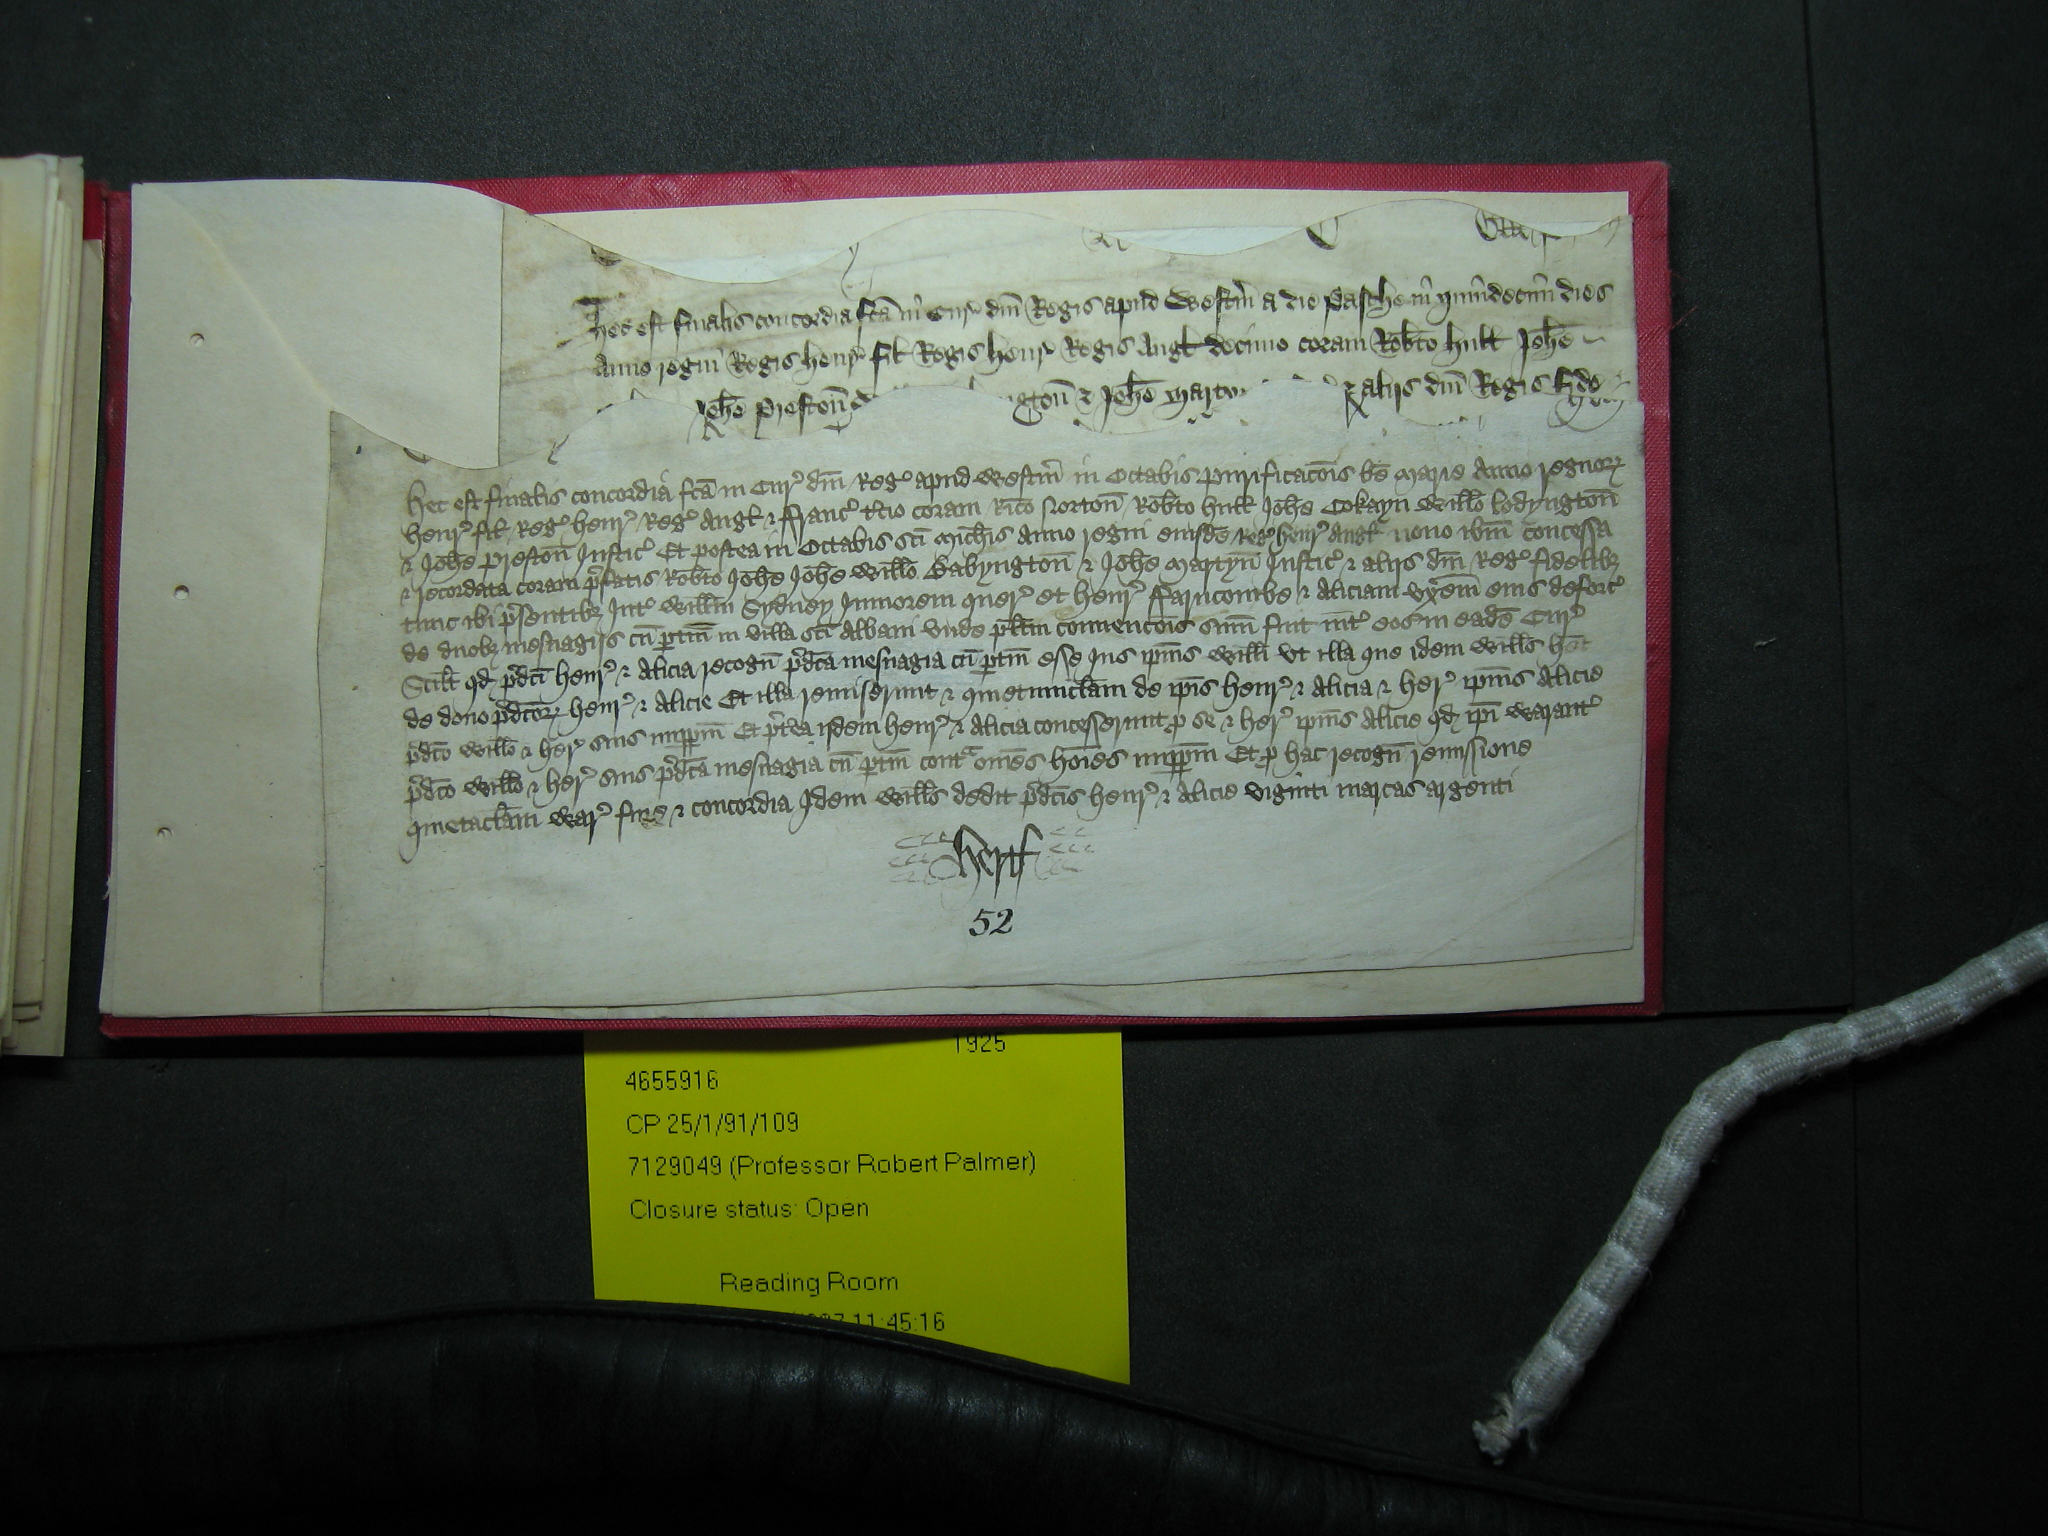 Hec est finalis concordia fcã in Cur' dñi Regis apud Westm̃ a die Pasche in quindecim dies
Anno regni Regis Henr' fil Regis Henr' Regis Angł decimo coram Rob̃to Hulł Joh̃e
Joh̃e Preston̄ gton̄ & Joh̃e Marty & aliis dñi Regis
Hec est finalis concordia fcã in Cur' dñi Reg' apud Westm̃ in Octabis Purificacõis bẽ Marie Anno regnoꝝ
Henr' fil Reg' Henr' Reg' Angł & Franc' t̃cio coram Ric̃o Norton̄ Rob̃to Hulł Joh̃e Cokayn Willo̅ Lodyngton̄
& Joh̃e Preston̄ Justic' Et postea in Octabis sc̃i Mich̃is Anno regni eiusdẽ Reg' Henr' Angł nono ib̃m concessa
& recordata coram p̃fatis Rob̃to Joh̃e Joh̃e Willo̅ Babyngton̄ & Joh̃e Martyn̄ Justic' & aliis dñi Reg' fidelibꝫ
tunc ibi p̃sentibꝫ Int' Willm̃ Sydney Juniorem quer' et Henr' Farncombe & Aliciam vx̃em eius deforc'
de duobꝫ mesuagiis cũ ptiñ in villa sc̃i Albani vnde pl̃itm conuencõis sum̃ fuit int' eos in eadẽ Cur'
Scilt̃ qd p̃dc̃i Henr' & Alicia recogñ p̃dc̃a mesuagia cũ ptiñ esse Jus ip̃ius Willi̅ vt illa que idem Wills̅ het̃
de dono p̃dc̃oꝝ Henr' & Alicie Et illa remiserunt & quietumclam̃ de ip̃is Henr' & Alicia & her' ip̃ius Alicie
p̃dc̃o Willo̅ & her' suis imp̃pm̃ Et p̃t̃ea idem Henr' & Alicia concesserunt ꝑ se & her' ip̃ius Alicie qd ip̃i Warant'
p̃dc̃o Willo̅ & her' suis p̃dc̃a mesuagia cũ ptiñ cont̃a om̃es hom̃es imp̃pm̃ Et ꝑ hac recogñ remissione
quietaclam̃ War' fine & concordia Idem Wills̅ dedit p̃dc̃is Henr' & Alicie viginti marcas argenti
Hertf
52
1925
4655916
CP 25/1/91/109
7129049 (Professor Robert Palmer)
Closure status: Open
Reading Room
11:45:16